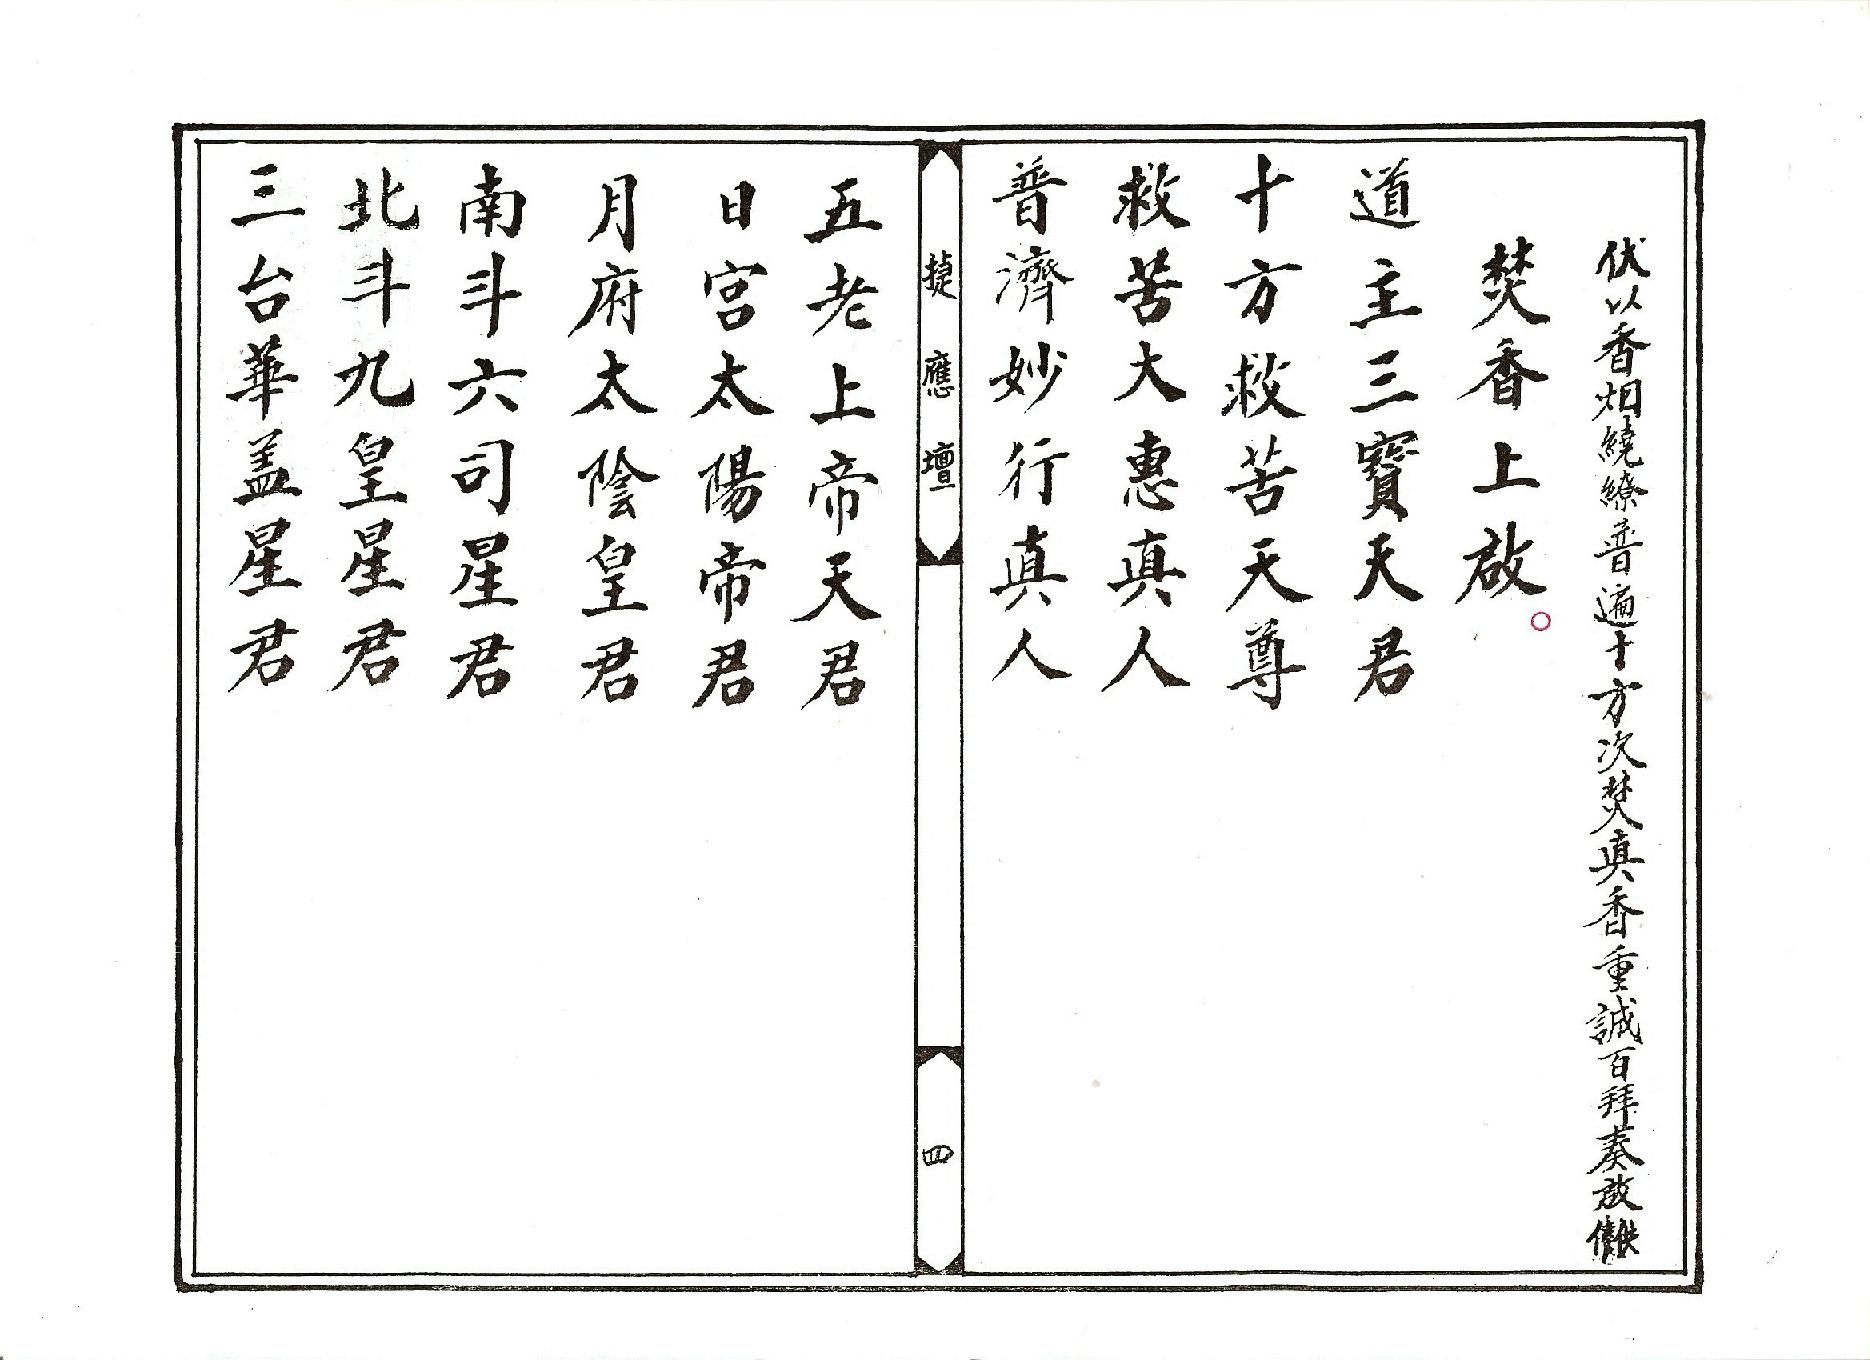 伏以香烟繞繚普遍十方次焚真香重誠百拜奏啟
焚香上啟。
道主三寶天君
十方救苦天尊
救苦大惠真人
普濟妙行真人
捷應壇
四
五老上帝天君
日宮太陽帝君
月府太陰皇君
南斗六司星君
北斗九皇星君
三台華盖星君